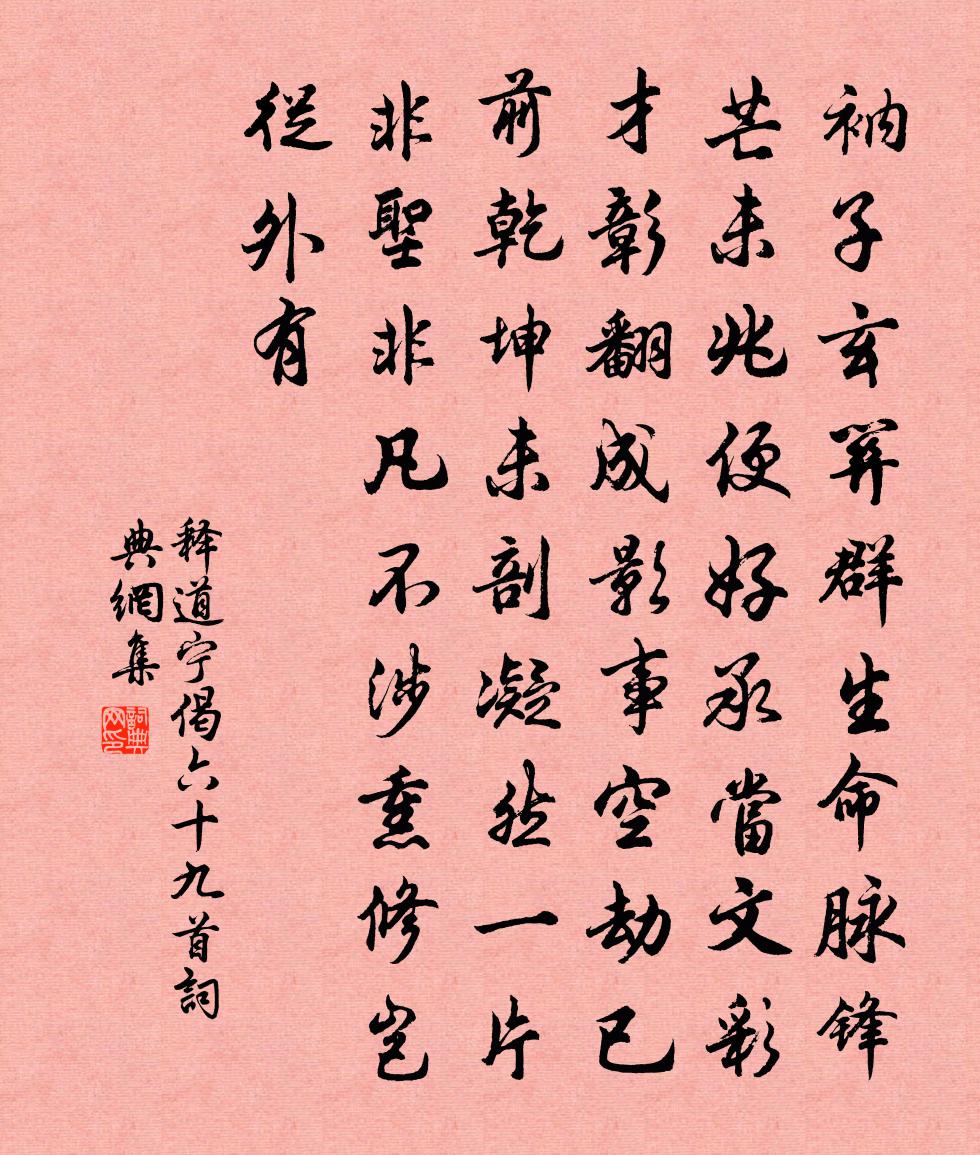 衲子玄關群生命脉鋒
芒未兆便好承當文彩
才彰翻成影事空劫已
前乾坤未剖凝然一片
非聖非凡不涉熏修豈
從外有
释道宁偈六十九首詞
典網集
詞典
网印